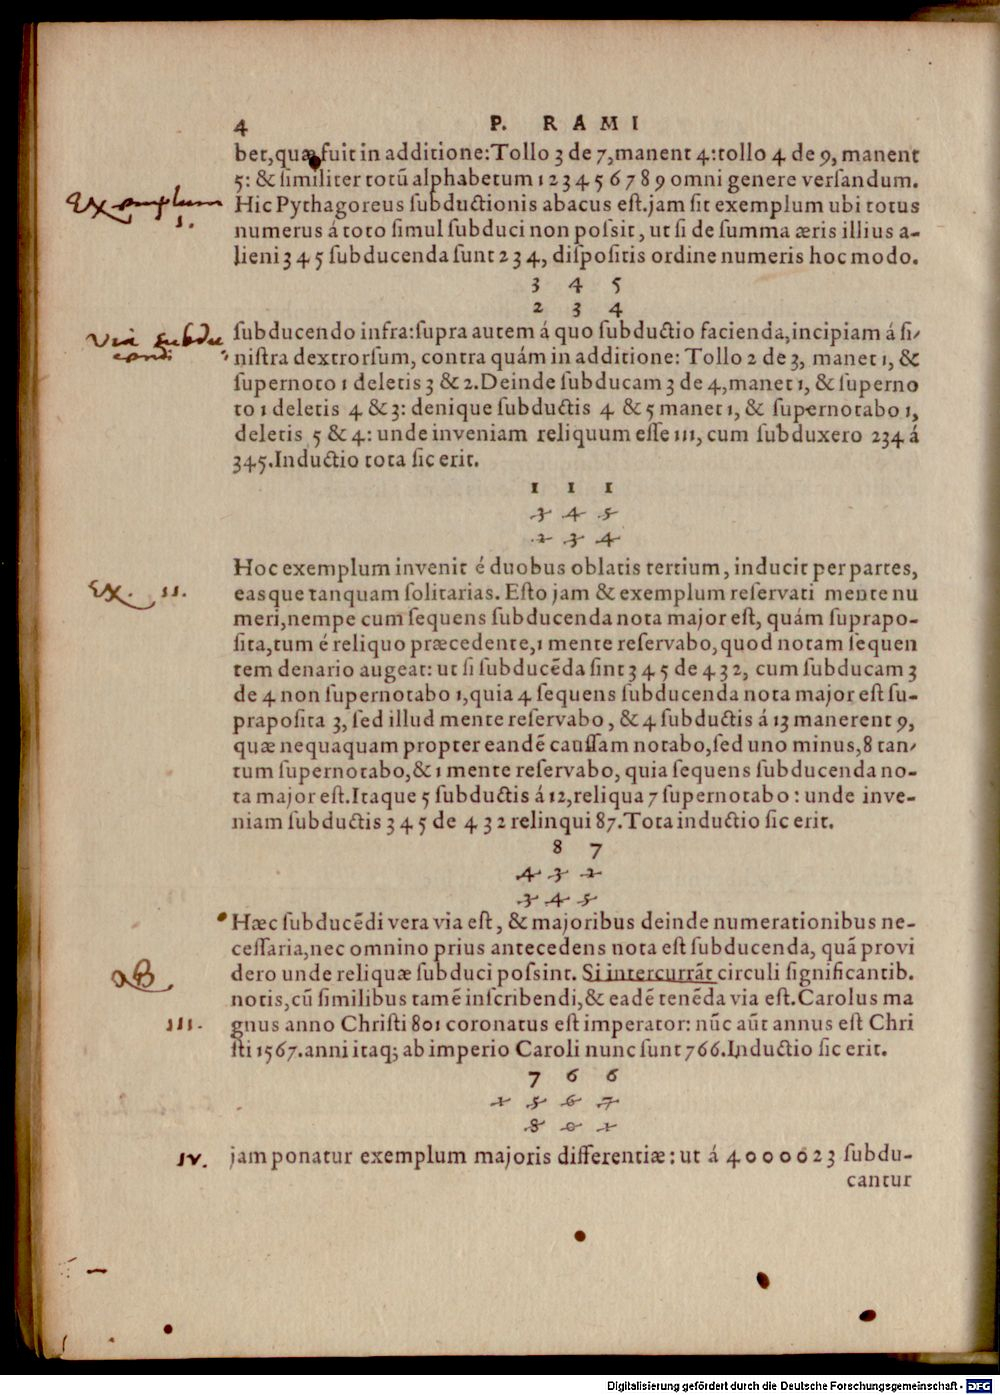 4 P. RAMI
bet,quæ fuit in additione:Tollo 3 de 7,manent 4:tollo 4 de 9, manent
5: & ſimiliter totū alphabetum 1 2 3 4 5 6 7 8 9 omni genere verſandum.
Exemplum 1.
Hic Pythagoreus ſubductionis abacus eſt.jam ſit exemplum ubi totus
numerus á toto ſimul ſubduci non poſsit, ut ſi de ſumma æris illius a-
lieni 3 4 5 ſubducenda ſunt 2 3 4, diſpoſitis ordine numeris hoc modo.
3 4 5
2 3 4
Via subdu
cendi
ſubducendo infra:ſupra autem á quo ſubductio facienda,incipiam á ſi-
niſtra dextrorſum, contra quám in additione: Tollo 2 de 3, manet 1, &
ſupernoto 1 deletis 3 & 2.Deinde ſubducam 3 de 4,manet 1, & ſuperno
to 1 deletis 4 & 3: denique ſubductis 4 & 5 manet 1, & ſupernotabo 1,
deletis 5 & 4: unde inveniam reliquum eſſe 111, cum ſubduxero 234 á
345.Inductio tota ſic erit.
1 1 1
3 4 5
2 3 4
Hoc exemplum invenit é duobus oblatis tertium, inducit per partes,
Ex. 11.
easque tanquam ſolitarias. Eſto jam & exemplum reſervati mente nu
meri,nempe cum ſequens ſubducenda nota major eſt, quám ſuprapo-
ſita,tum é reliquo præcedente,1 mente reſervabo,quod notam ſequen
tem denario augeat: ut ſi ſubducēda ſint 3 4 5 de 4 3 2, cum ſubducam 3
de 4 non ſupernotabo 1,quia 4 ſequens ſubducenda nota major eſt ſu-
prapoſita 3, ſed illud mente reſervabo, & 4 ſubductis á 13 manerent 9,
quæ nequaquam propter eandē cauſſam notabo,ſed uno minus,8 tan-
tum ſupernotabo,& 1 mente reſervabo, quia ſequens ſubducenda no-
ta major eſt.Itaque 5 ſubductis á 12,reliqua 7 ſupernotabo: unde inve-
niam ſubductis 3 4 5 de 4 3 2 relinqui 87.Tota inductio ſic erit.
8 7
4 3 2
3 4 5
Hæc ſubducēdi vera via eſt, & majoribus deinde numerationibus ne-
ceſſaria,nec omnino prius antecedens nota eſt ſubducenda, quā provi
dero unde reliquæ ſubduci poſsint. Si intercurrāt circuli ſignificantib.
notis,cū ſimilibus tamē inſcribendi,& eadē tenēda via eſt.Carolus ma
111.
gnus anno Chriſti 801 coronatus eſt imperator: nūc aūt annus eſt Chri
ſti 1567.anni itaq; ab imperio Caroli nunc ſunt 766.Inductio ſic erit.
7 6 6
1 5 6 7
8 0 1
IV.
jam ponatur exemplum majoris differentiæ: ut á 4 0 0 0 0 2 3 ſubdu-
cantur
Digitalisierung gefördert durch die Deutsche Forschungsgemeinschaft - DFG